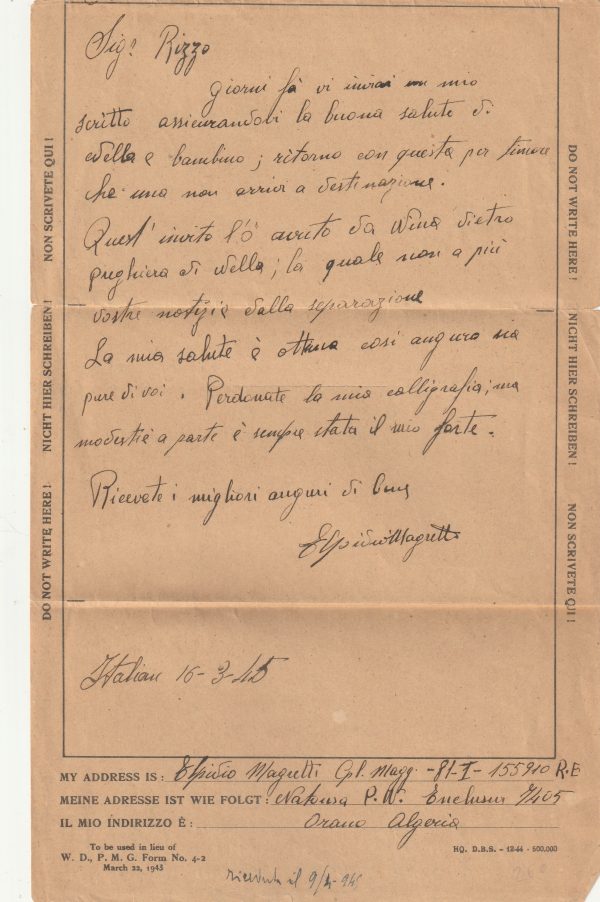 Sigr Rizzo
Giorni fà vi inviai un mio
scritto assicurandovi la buona salute di
Nella e bambino; ritorno con questa per timore
che una non arrivi a destinazione.
Quest' invito l'ò avuto da Nina dietro
preghiera di Nella; la quale non a più
vostre notizie dalla separazione
La mia salute è ottima così auguro sia
pure di voi. Perdonate la mia calligrafia; ma
modestiè a parte è sempre stata il mio forte.
Ricevete i migliori auguri di bene
Elpidio Magretti
Italian 16-3-45
NON SCRIVETE QUI!
NICHT HIER SCHREIBEN!
DO NOT WRITE HERE!
DO NOT WRITE HERE!
NICHT HIER SCHREIBEN!
NON SCRIVETE QUI!
MY ADDRESS IS: Elpidio Magretti Cpl. Magg. -81-I-155910 R.E
MEINE ADRESSE IST WIE FOLGT: P.W. Enclosur 7/405
IL MIO INDIRIZZO È: Orano Algeria
To be used in lieu of
W. D., P. M. G. Form No. 4-2
March 22, 1943
HQ. D.B.S. - 12-44 - 500,000
ricevuta il 9/4-945